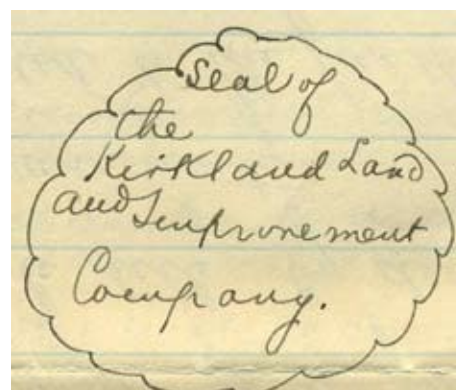 Seal of
the
Kirkland Land
and Improvement
Company.